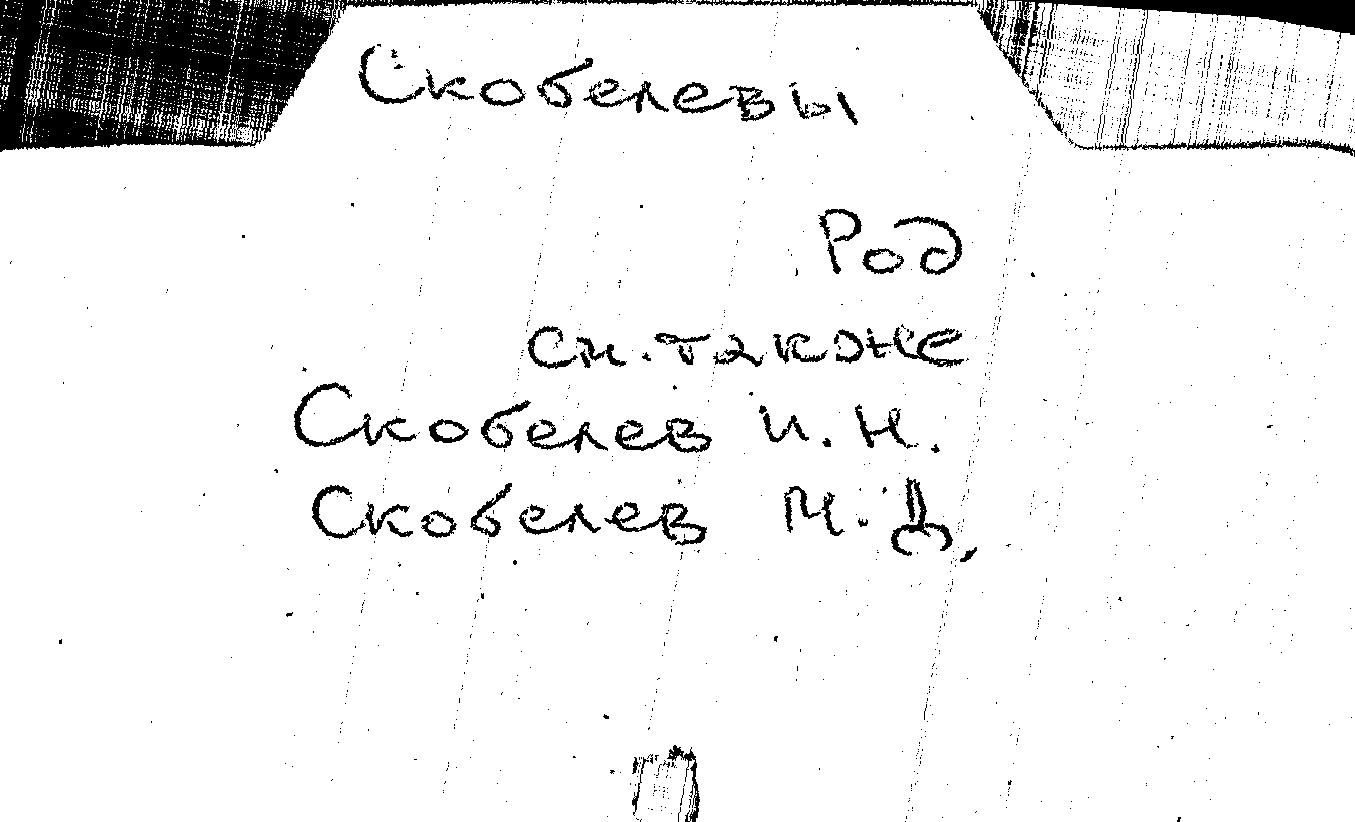 Скобелевы
Род
см. также
Скобелев И. Н.
Скобелев М. Д.